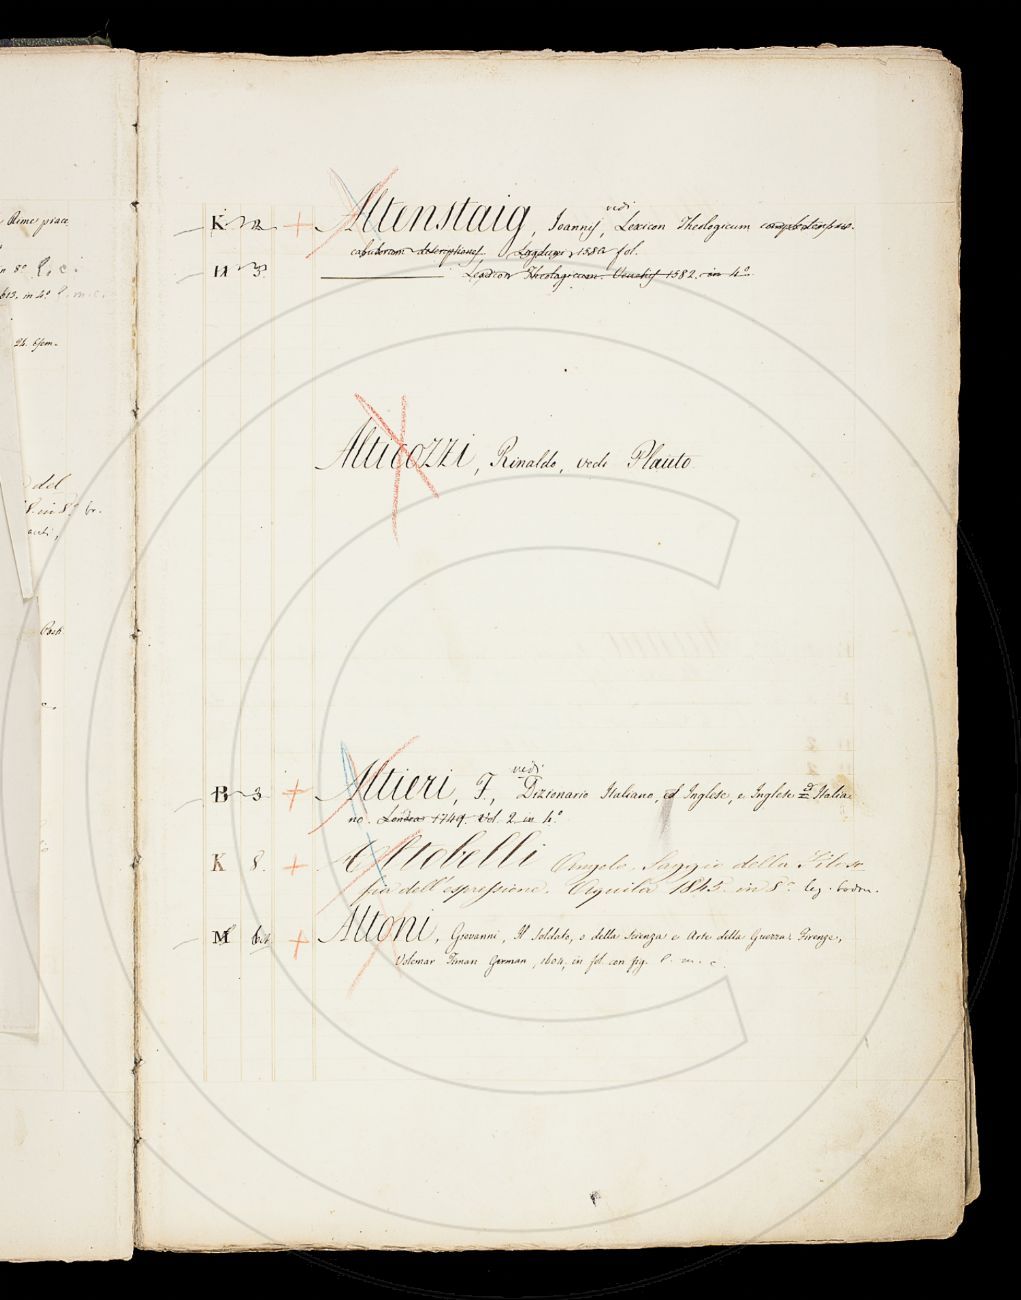 Rime piace
n 8º l. c.
613. in 4º l. m. c.
24. 6/em.
del
8. in 8º br.
acchi,
Post.
K 2 + Altenstaig, Joannis, vedi Lexicon Theologicum complectens vo-
cabulorum descriptiones. Lugduni, 1580 fol.
H 3 Lexicon Theologicum. Venetiis 1582. in 4º
Alticozzi, Rinaldo, vedi Plauto
B 3 + Altieri, F., vedi Dizionario Italiano, ed Inglese, e Inglese ed Italia-
no. Londra 1749. Vol. 2 in 4º
K 8. + Altobelli Angelo. Saggio della Filoso-
fia dell'espressione. Aquila 1845. in 8º leg. bodon.
M + Altoni, Giovanni, Il Soldato, o della Scienza e Arte della Guerra. Firenze,
Volcmar Timan German, 1604, in fol. con fig. l. m. c.